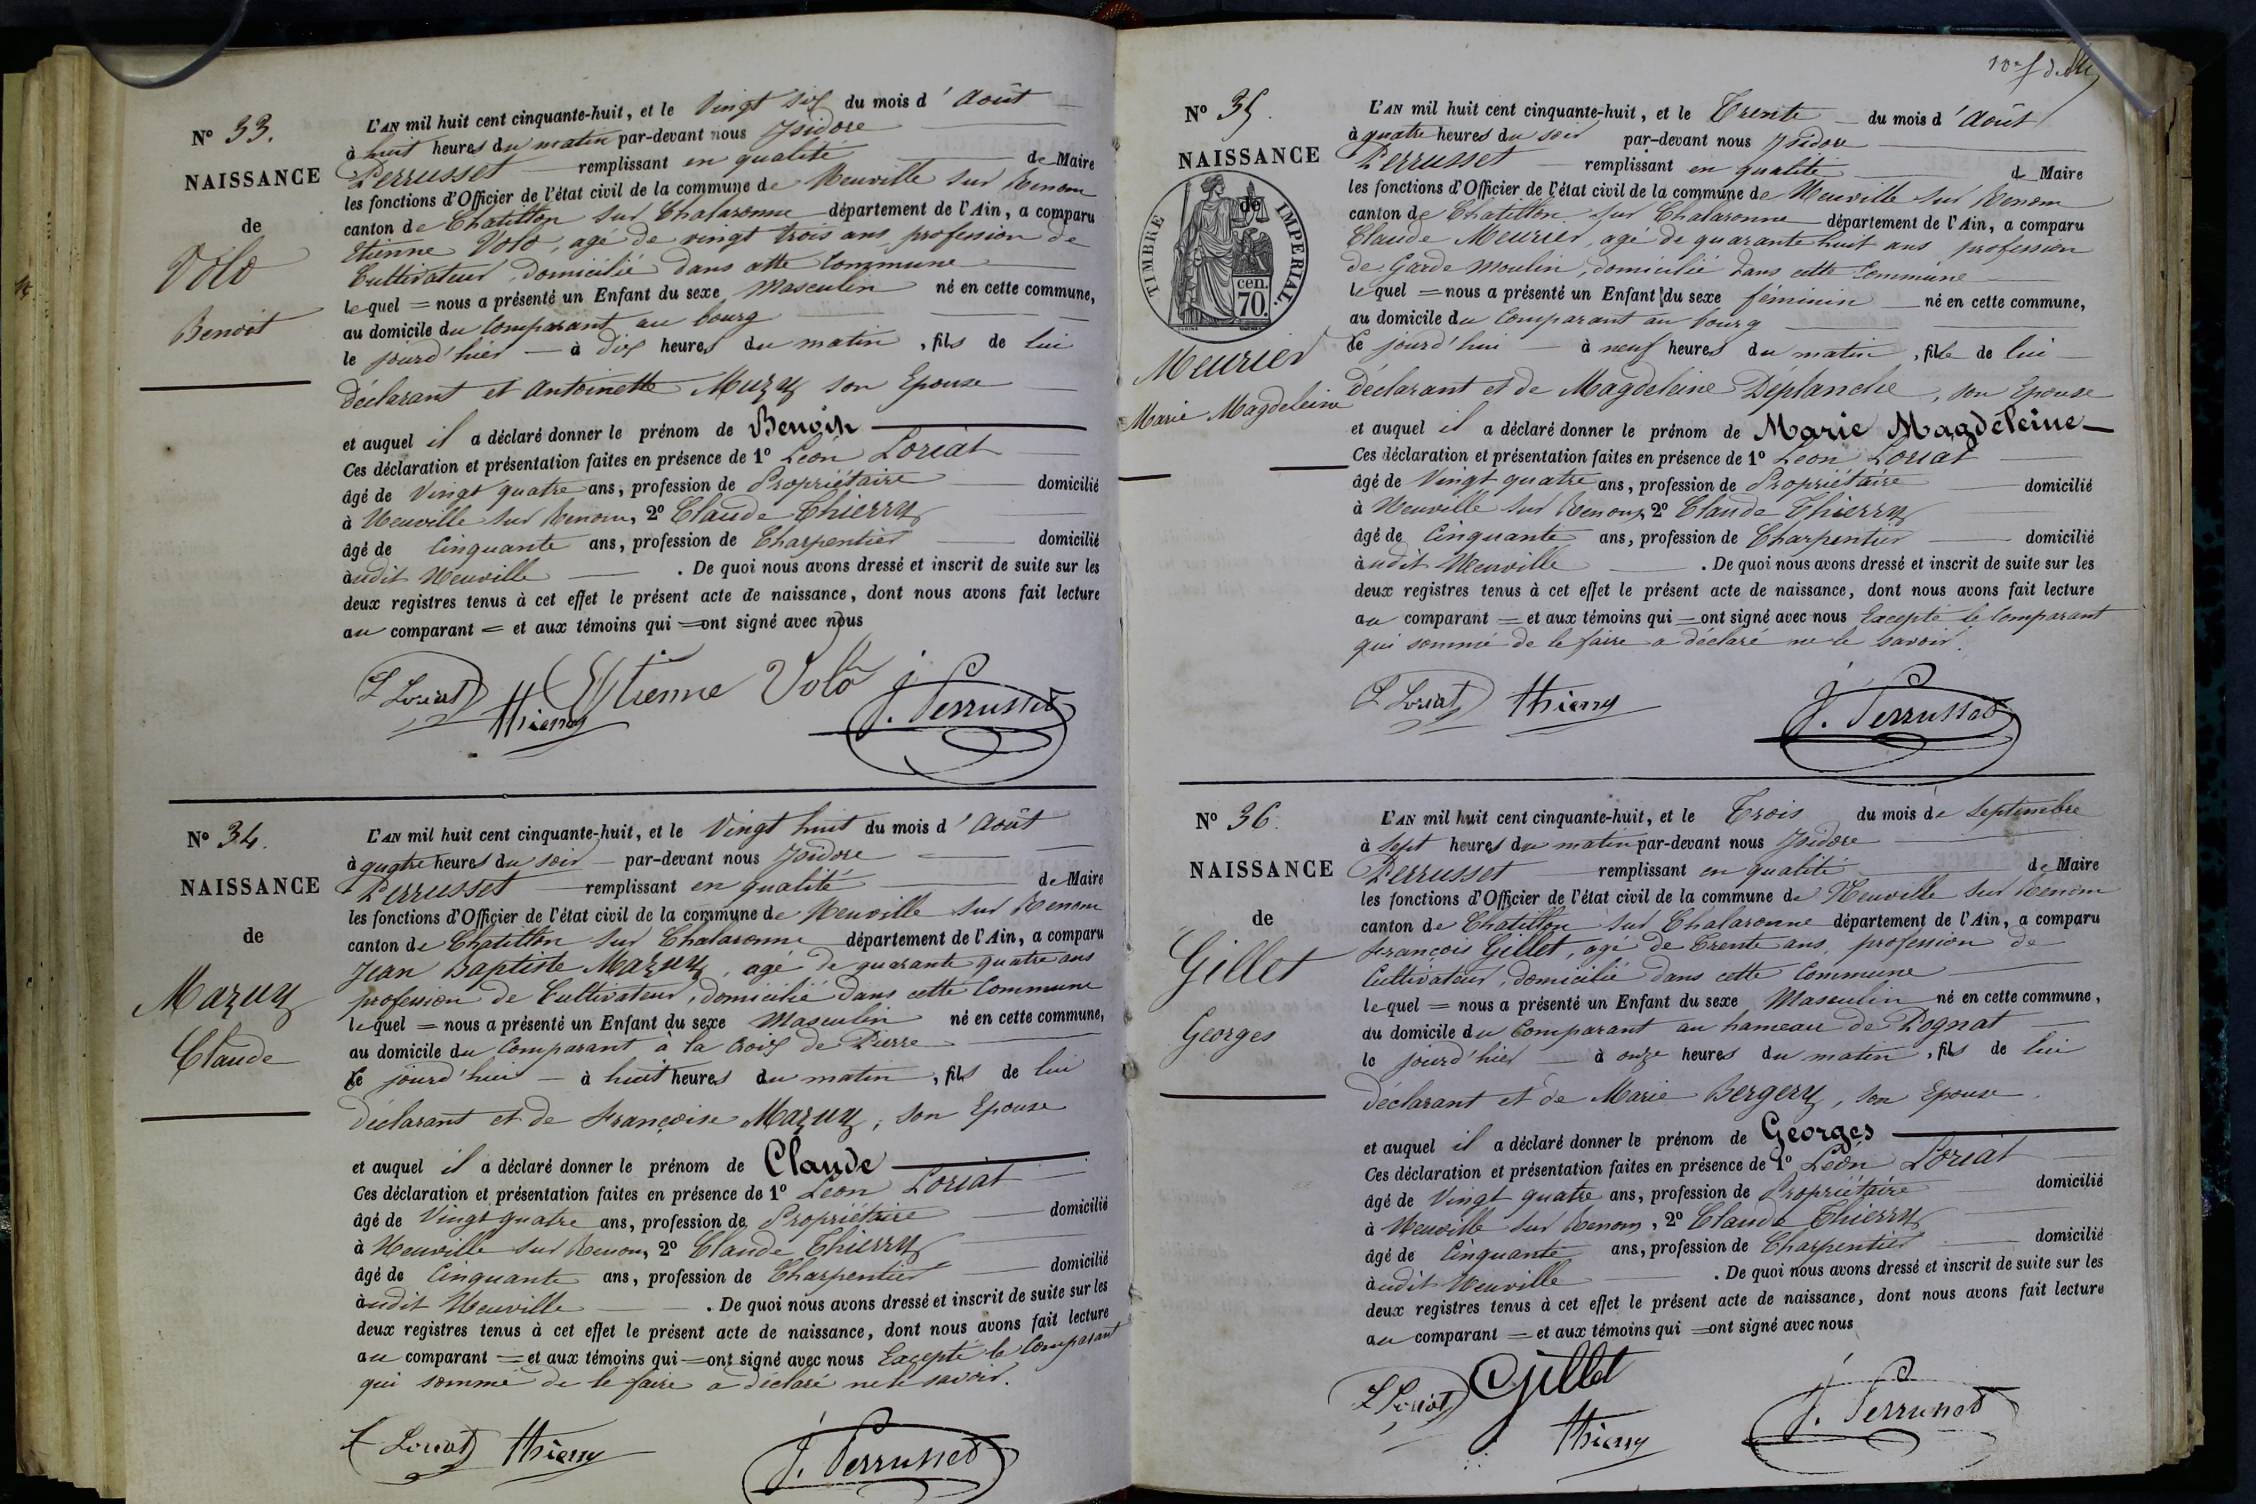 N° 33.
NAISSANCE
de
Volo
Benoit
L'AN mil huit cent cinquante-huit, et le Vingt six du mois d'Août
à huit heures du matin par-devant nous Isidore
Perrusset remplissant en qualité de Maire
les fonctions d'Officier de l'état civil de la commune de Neuville sur Renom
canton de Chatillon sur Chalaronne département de l'Ain, a comparu
Etienne Volo, agé de vingt trois ans, profession de
Cultivateur, domicilié dans cette Commune
lequel = nous a présenté un Enfant du sexe Masculin né en cette commune,
au domicile du Comparant au bourg
le jourd'hier à dix heures du matin, fils de lui
déclarant et Antoinette Muzy son Epouse
et auquel il a déclaré donner le prénom de Benoit
Ces déclaration et présentation faites en présence de 1° Léon Loriat
âgé de Vingt quatre ans, profession de Propriétaire domicilié
à Neuville sur Renom, 2° Claude Thierry
âgé de Cinquante ans, profession de Charpentier domicilié
audit Neuville . De quoi nous avons dressé et inscrit de suite sur les
deux registres tenus à cet effet le présent acte de naissance, dont nous avons fait lecture
au comparant = et aux témoins qui = ont signé avec nous
L Loriat Thierry Etienne Volo J. Perrusset
N° 34.
NAISSANCE
de
Mazuy
Claude
L'AN mil huit cent cinquante-huit, et le Vingt huit du mois d'Août
à quatre heures du soir par-devant nous Isidore
Perrusset remplissant en qualité de Maire
les fonctions d'Officier de l'état civil de la commune de Neuville sur Renom
canton de Chatillon sur Chalaronne département de l'Ain, a comparu
Jean Baptiste Mazuy, agé de quarante quatre ans
profession de Cultivateur, domicilié dans cette Commune
lequel = nous a présenté un Enfant du sexe Masculin né en cette commune,
au domicile du Comparant à la Croix de Pierre
Ce jourd'hui à huit heures du matin, fils de lui
déclarant et de Françoise Mazuy, son Epouse
et auquel il a déclaré donner le prénom de Claude
Ces déclaration et présentation faites en présence de 1° Léon Loriat
âgé de Vingt quatre ans, profession de Propriétaire domicilié
à Neuville sur Renom, 2° Claude Thierry
âgé de Cinquante ans, profession de Charpentier domicilié
audit Neuville . De quoi nous avons dressé et inscrit de suite sur les
deux registres tenus à cet effet le présent acte de naissance, dont nous avons fait lecture
au comparant = et aux témoins qui = ont signé avec nous Excepté le Comparant
qui sommé de le faire a déclaré ne le savoir.
L Loriat Thierry J. Perrusset
N° 35.
NAISSANCE
de
TIMBRE IMPERIAL.
cen.
70.
Meurier
Marie Magdeleine
L'AN mil huit cent cinquante-huit, et le Trente du mois d'Août
à quatre heures du soir par-devant nous Isidore
Perrusset remplissant en qualité d Maire
les fonctions d'Officier de l'état civil de la commune de Neuville sur Renom
canton de Chatillon sur Chalaronne département de l'Ain, a comparu
Claude Meurier, agé de quarante huit ans profession
de Garde Moulin, domicilié dans cette Commune
lequel = nous a présenté un Enfant du sexe féminin né en cette commune,
au domicile du Comparant au bourg
Ce jourd'hui à neuf heures du matin, fille de lui
déclarant et de Magdeleine Déplanche, son Epouse
et auquel il a déclaré donner le prénom de Marie Magdeleine
Ces déclaration et présentation faites en présence de 1° Léon Loriat
âgé de Vingt quatre ans, profession de Propriétaire domicilié
à Neuville sur Renom, 2° Claude Thierry
âgé de Cinquante ans, profession de Charpentier domicilié
audit Neuville . De quoi nous avons dressé et inscrit de suite sur les
deux registres tenus à cet effet le présent acte de naissance, dont nous avons fait lecture
au comparant = et aux témoins qui = ont signé avec nous Excepté le Comparant
qui sommé de le faire a déclaré ne le savoir.
L Loriat Thierry J. Perrusset
N° 36.
NAISSANCE
de
Gillet
Georges
L'AN mil huit cent cinquante-huit, et le Trois du mois de Septembre
à Sept heures du matin par-devant nous Isidore
Perrusset remplissant en qualité de Maire
les fonctions d'Officier de l'état civil de la commune de Neuville sur Renom
canton de Chatillon sur Chalaronne département de l'Ain, a comparu
François Gillet, agé de Trente ans, profession de
Cultivateur, domicilié dans cette Commune
lequel = nous a présenté un Enfant du sexe Masculin né en cette commune,
au domicile du Comparant au hameau de Pognat
le jourd'hier à onze heures du matin, fils de lui
déclarant et de Marie Bergery, son Epouse.
et auquel il a déclaré donner le prénom de Georges
Ces déclaration et présentation faites en présence de 1° Léon Loriat
âgé de Vingt quatre ans, profession de Propriétaire domicilié
à Neuville sur Renom, 2° Claude Thierry
âgé de Cinquante ans, profession de Charpentier domicilié
audit Neuville . De quoi nous avons dressé et inscrit de suite sur les
deux registres tenus à cet effet le présent acte de naissance, dont nous avons fait lecture
au comparant = et aux témoins qui = ont signé avec nous
L Loriat Gillet Thierry J. Perrusset